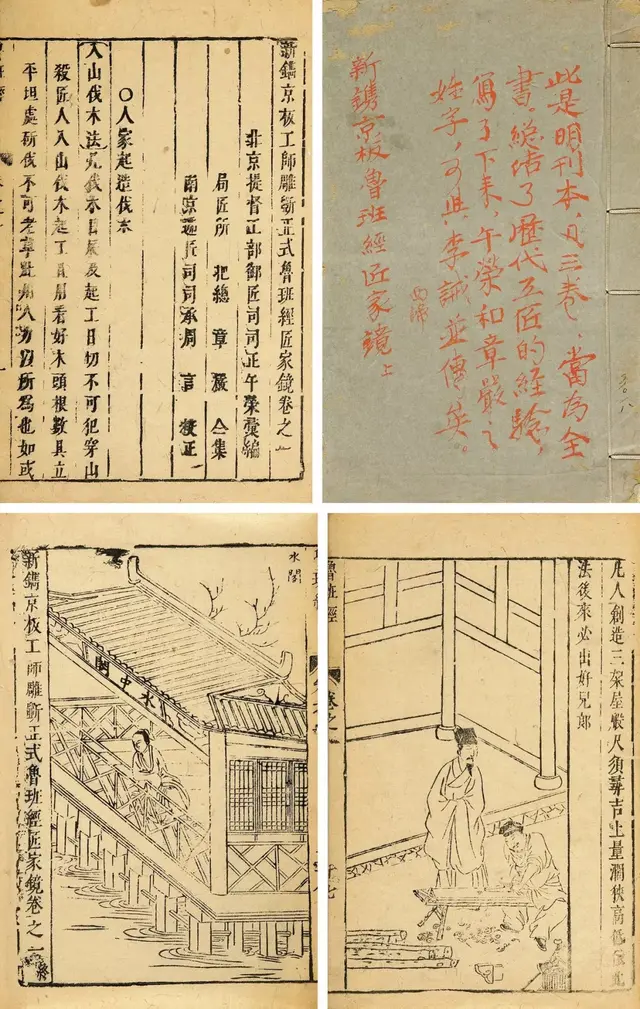 新鐫京板工師雕斲正式魯班經匠家鏡卷之一
北京提督工部御匠司司正午榮彙編
局匠所 把總 章嚴 仝集
南京遞匠司司承周言 校正
○人家起造伐木
入山伐木法凢伐木日辰及起工日切不可犯穿山
殺匠人入山伐木起工且用看好木頭根數具立
平坦處斫伐不可老草 用人力以所為也如或
此是明刊本,凡三卷,當為全
書。總結了歷代工匠的經驗,
寫了下来,午榮和章嚴之
姓字,可與李誡並傳矣。
西諦
新鐫京板魯班經匠家鏡 上
水閣
水中閣
新鐫京板工師雕斲正式魯班經匠家鏡卷之一
凢人創造三架屋般尺須尋吉上量濶狹高低依此
法後來必出好兄郎
魯班經
卷之一